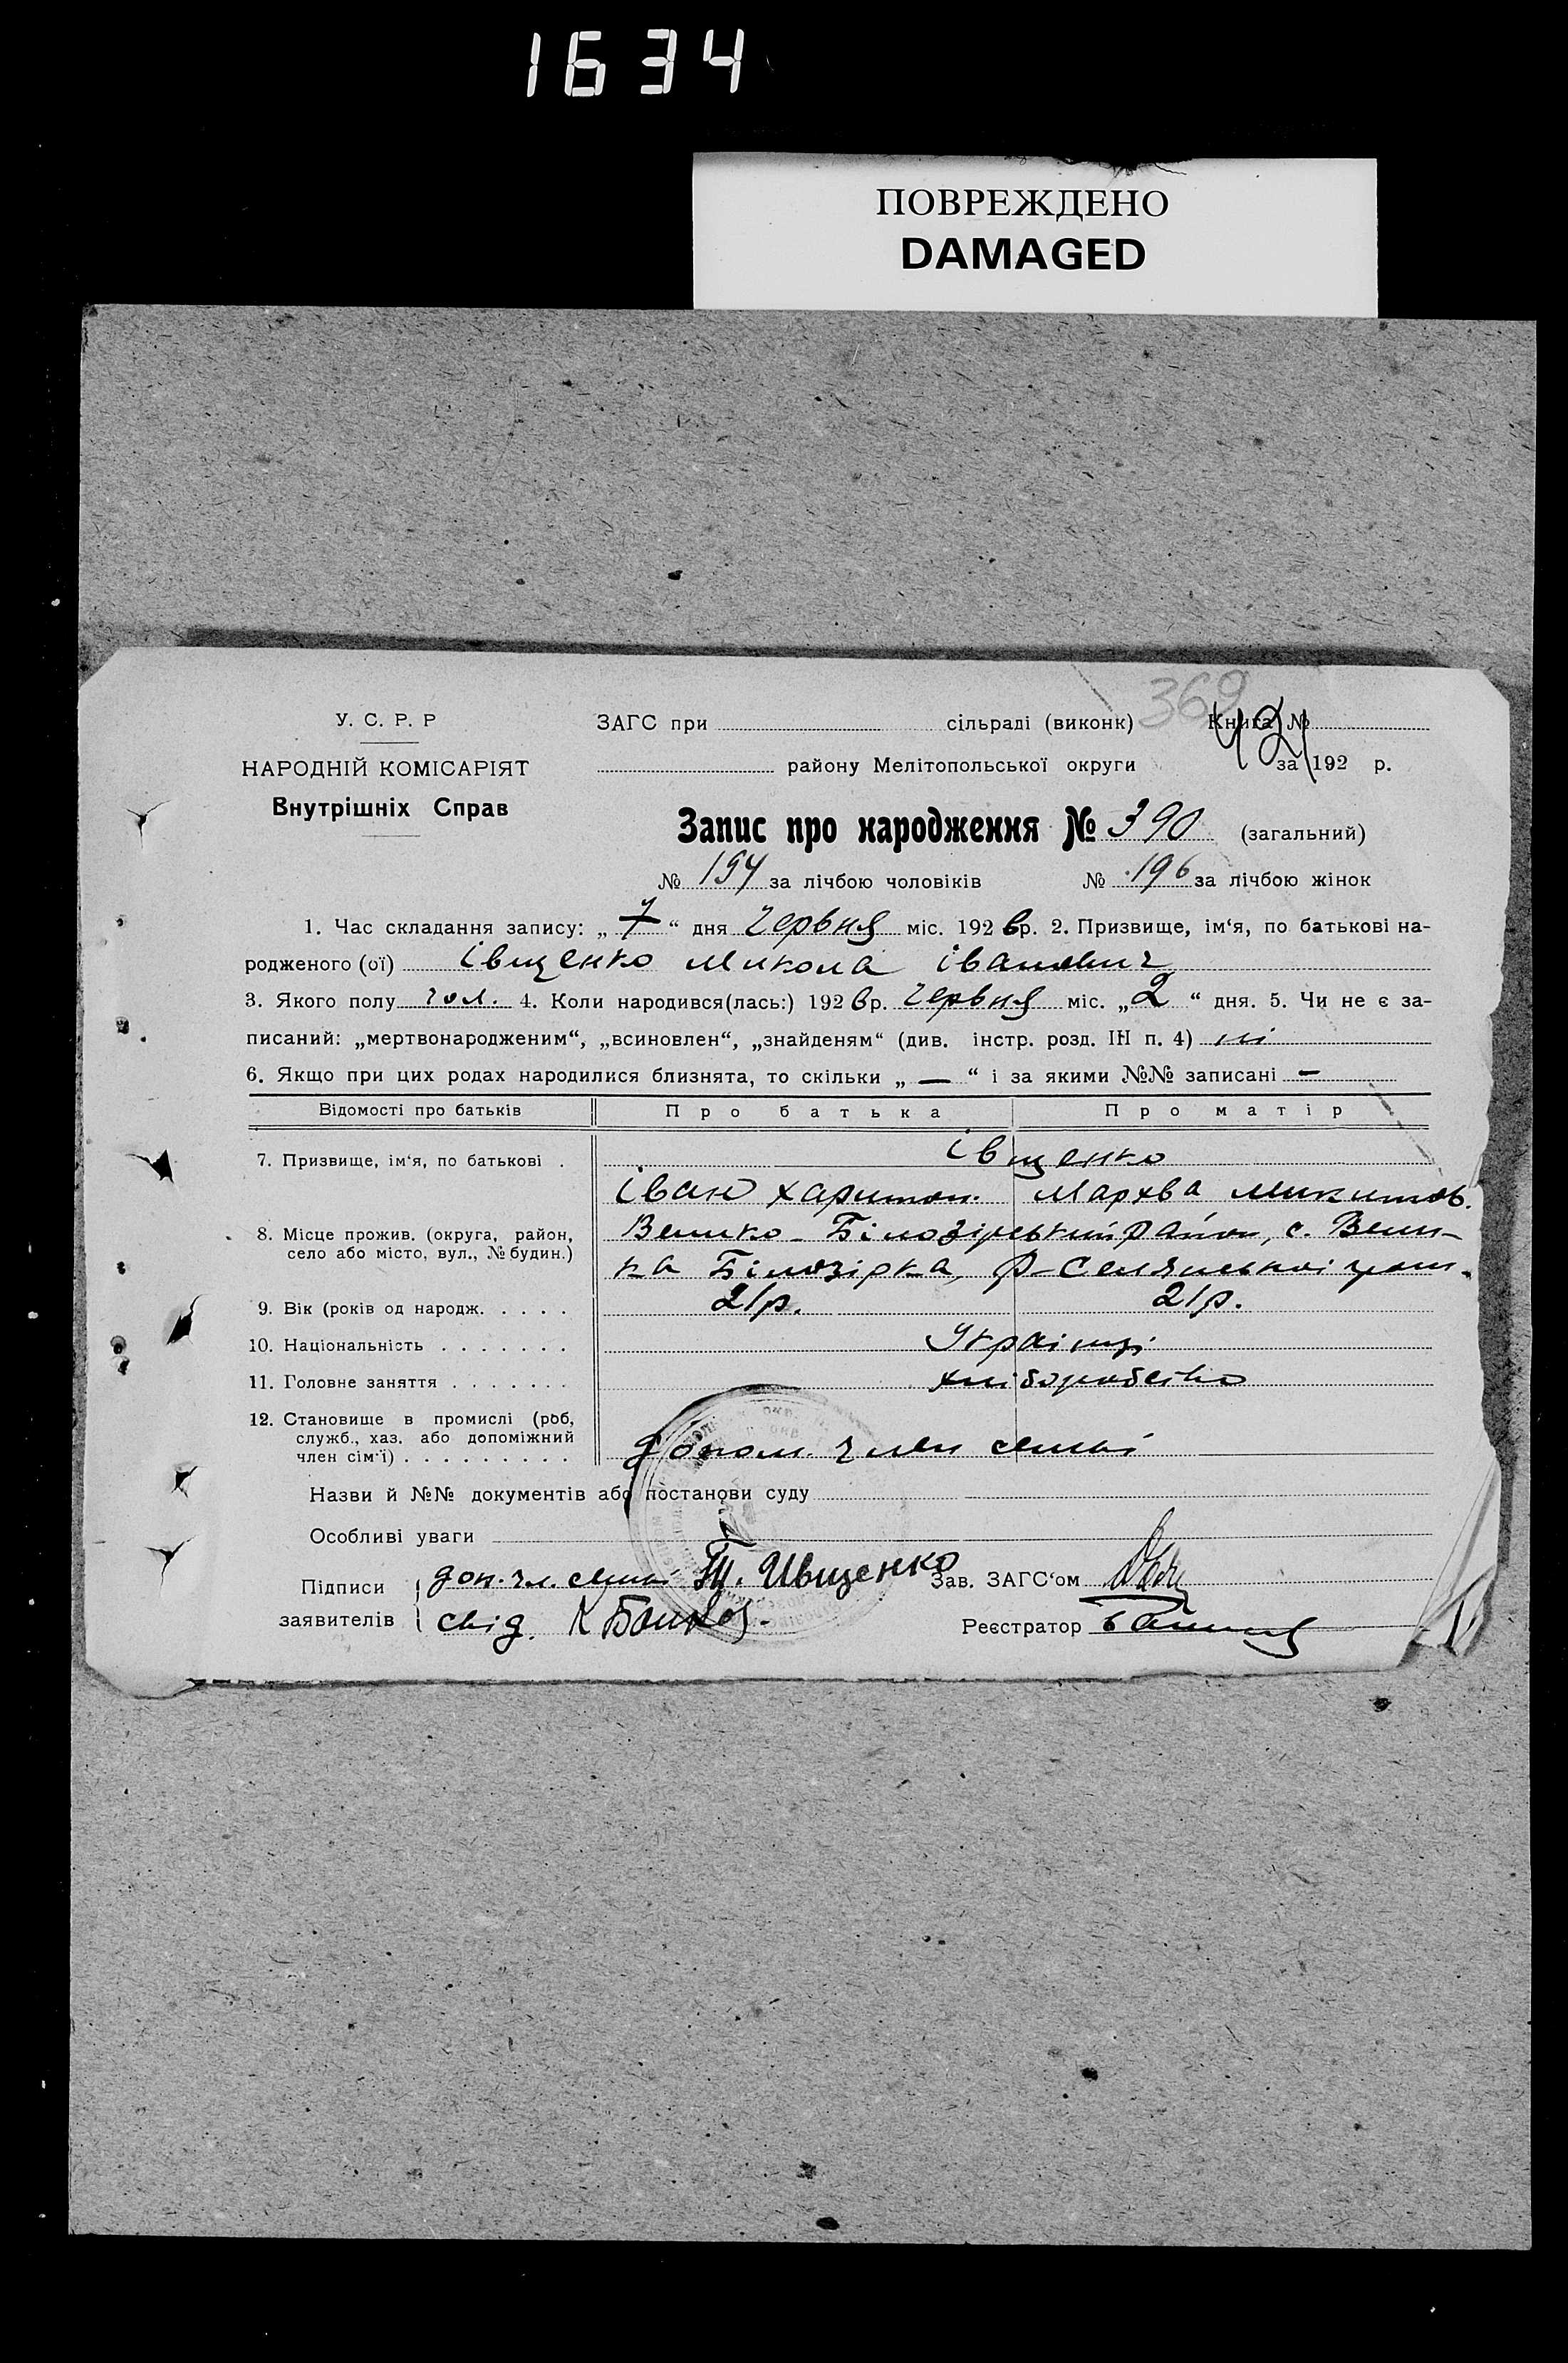 1634
ПОВРЕЖДЕНО
DAMAGED
369
У. С. Р. Р
ЗАГС при сільраді (виконк) Книга №
42
НАРОДНІЙ КОМІСАРІЯТ
району Мелітопольської округи за 192 р.
Внутрішніх Справ
Запис про народження № 390 (загальний)
№ 194 за лічбою чоловіків № 196 за лічбою жінок
1. Час складання запису: „ 7 “ дня червня міс. 192 6 р. 2. Призвище, ім‘я, по батькові на-
родженого (ої) Івщенко Микола Іванович
3. Якого полу чол. 4. Коли народився(лась:) 192 6 р. червня міс. „ 2 “ дня. 5. Чи не є за-
писаний: „мертвонародженим“, „всиновлен“, „знайденям“ (див. інстр. розд. ІН п. 4) ні
6. Якщо при цих родах народилися близнята, то скільки „ — “ і за якими №№ записані —
Відомості про батьків Про батька Про матір
7. Призвище, ім‘я, по батькові . Івщенко
Іван Харитон. Мархва Микитов.
8. Місце прожив. (округа, район, Велико-Білозірський район, с. Вели-
село або місто, вул., № будин.) ка Білозірка, Р-Селянської
9. Вік (років од народж. . . . . 21 р. 21 р.
10. Національність . . . . . . . Українці
11. Головне заняття . . . . . . . хліборобство
12. Становище в промислі (роб,
служб., хаз. або допоміжний
член сім‘ї) . . . . . . . . . допом. член семьї
Назви й №№ документів або постанови суду
Особливі уваги
Підписи доп. чл. семьї Т. Ивщенко Зав. ЗАГС‘ом
заявителів свід. К Реєстратор